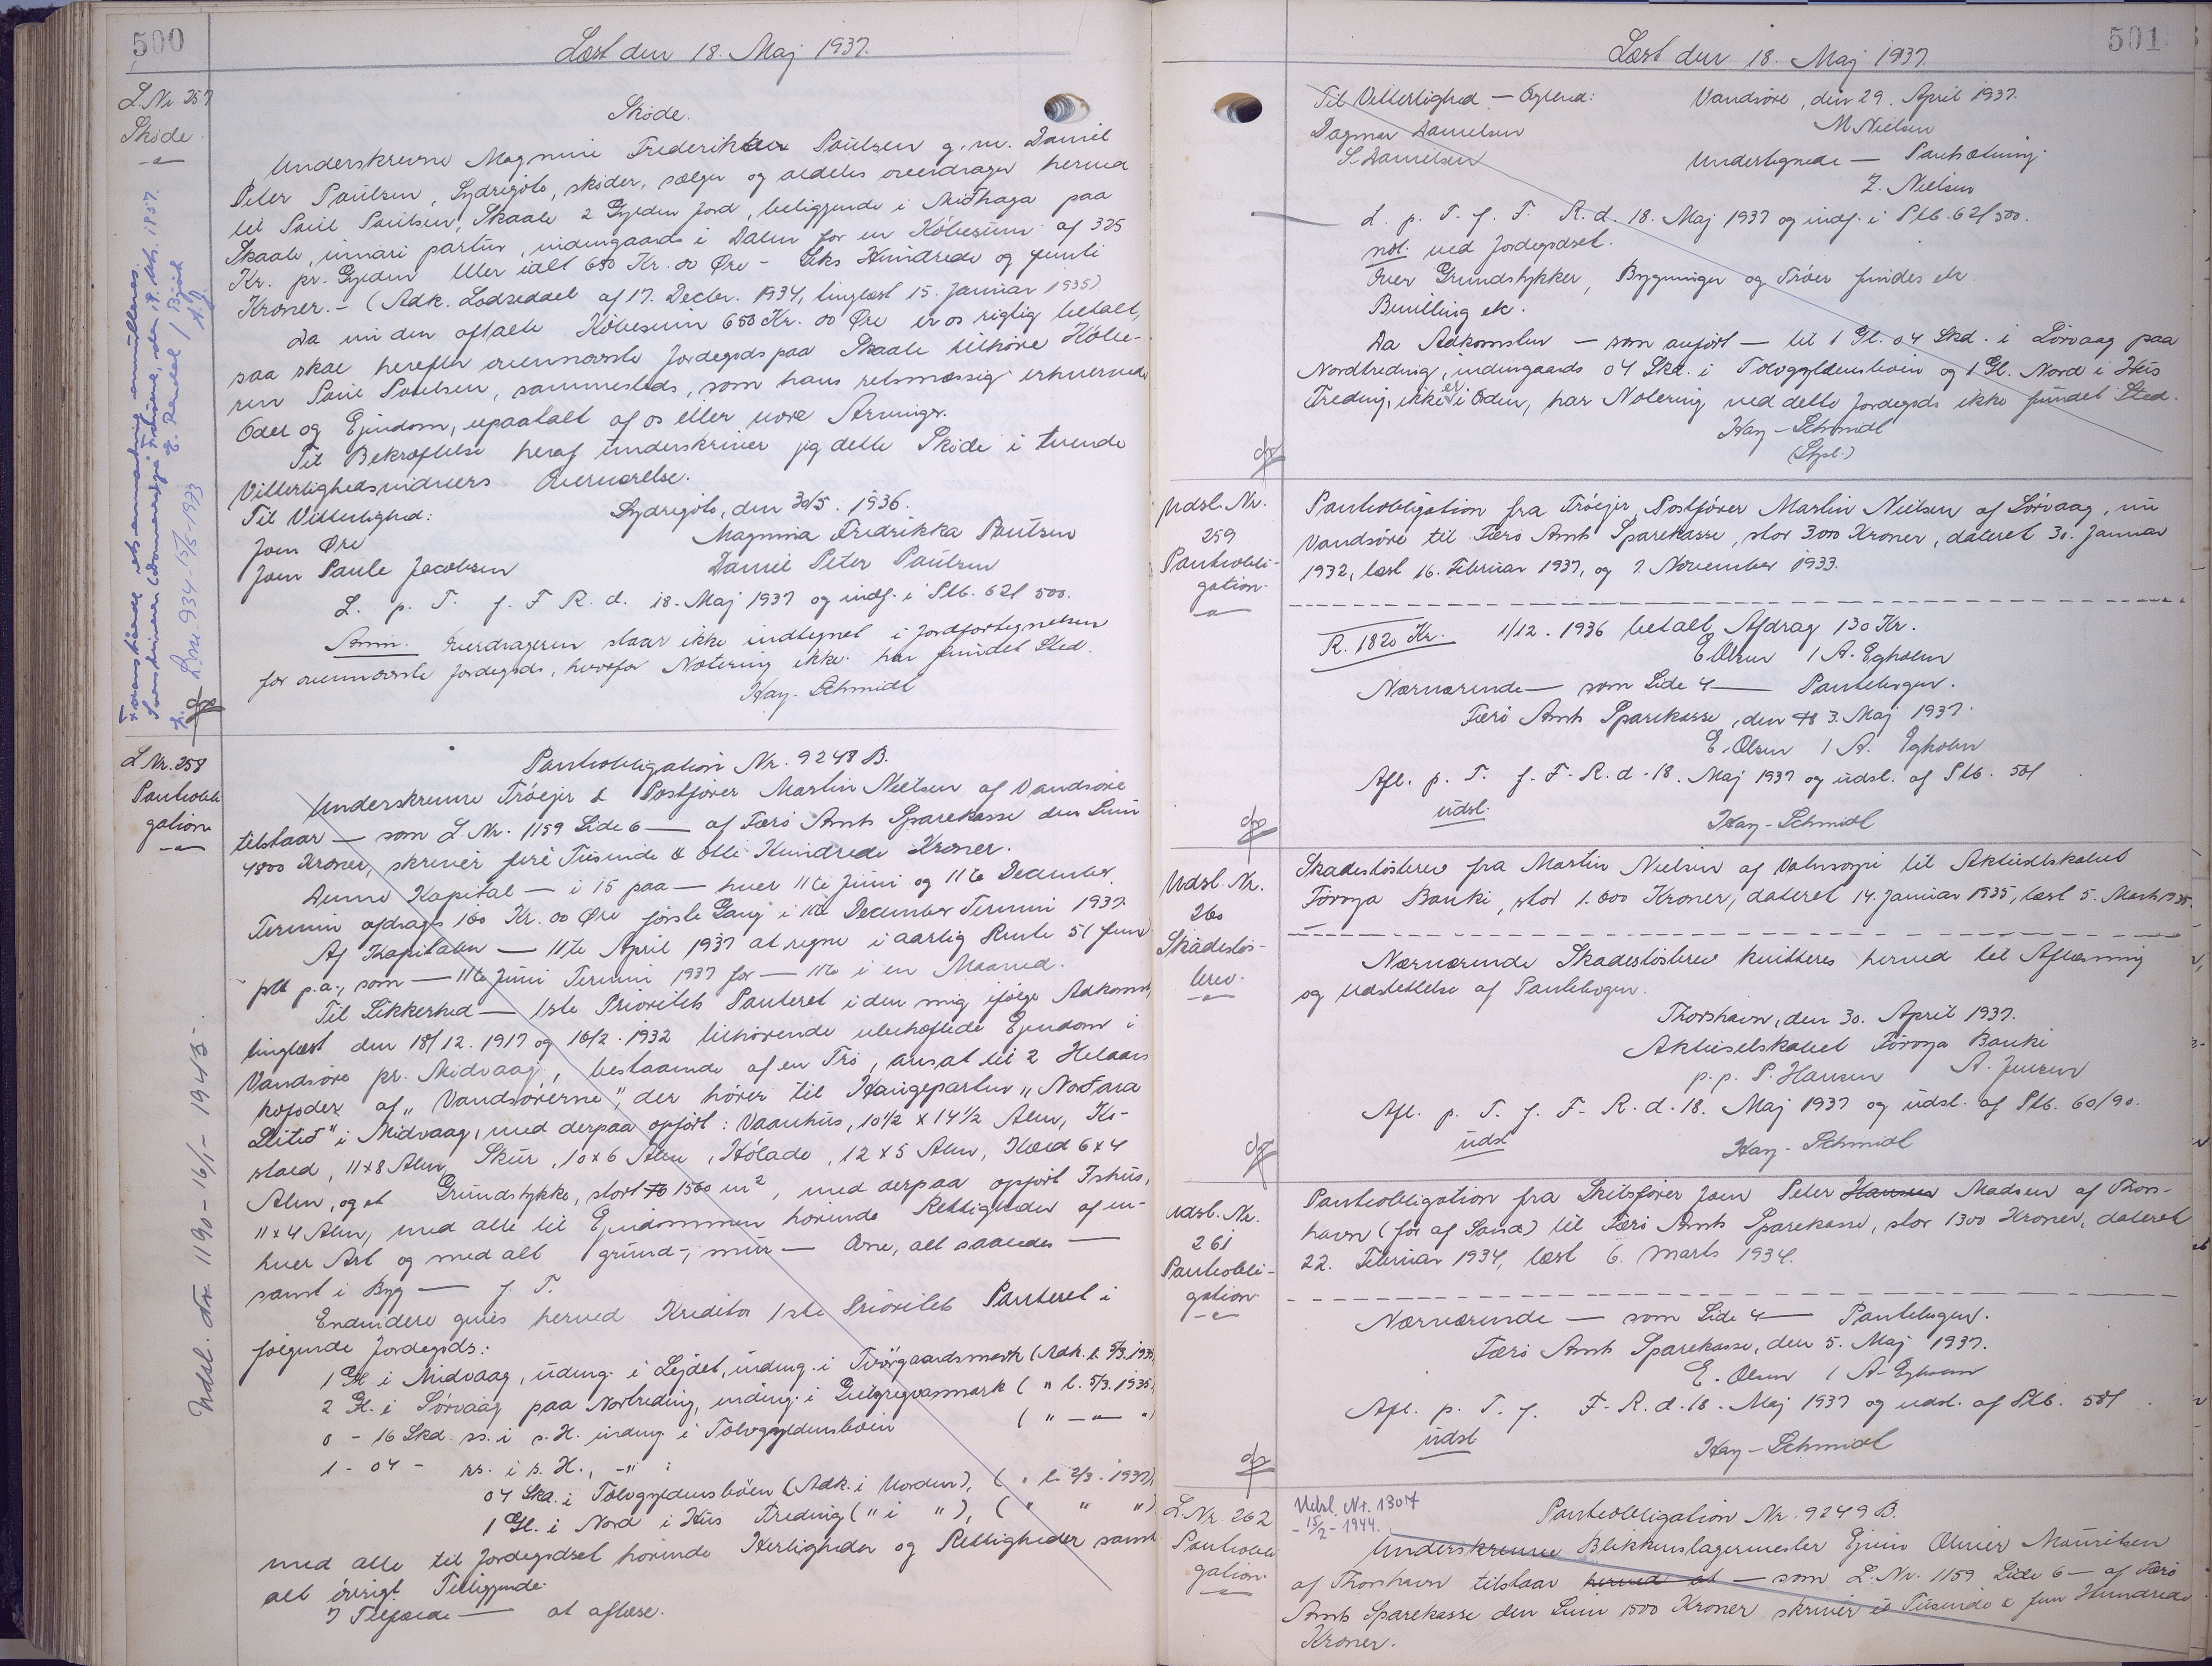 500
Læst den 18. Maj 1937.
L. Nr. 257
Skøde
Skøde.
Underskrevne Magnine Frederikke Paulsen g. m. Daniel
Peter Paulsen, Sydrigøto, skøder, sælger og aldeles overdrager herved
til Poul Poulsen, Skaale 2 Gylden Jord, beliggende i Miðhaga paa
Skaale, innari partur, indengaards i Dalen for en Købesum af 325
Kr. pr. Gylden eller ialt 650 Kr. 00 Øre - Seks Hundrede og femti
Kroner. - (Adk. Lodseddel af 17. Decbr. 1934, tinglæst 15. Januar 1935).
Da nu den aftalte Købesum 650 Kr. 00 Øre er os rigtig betalt,
saa skal herefter ovennævnte Jordegods paa Skaale tilhøre Købe-
ren Poul Poulsen, sammesteds, som hans retsmæssig erhvervede
Odel og Ejendom, upaatalt af os eller vore Arvinger.
Til Bekræftelse heraf underskriver jeg dette Skøde i tvende
Vitterlighedsvidners Overværelse.
Til Vitterlighed:
Sydrigøto, den 30/5. 1936.
Joen Øre
Magnina Fredrikka Paulsen
Joen Paule Jacobsen
Daniel Peter Paulsen
L. p. T. f. F. R. d. 18. Maj 1937 og indf. i Ptb. 62f 500.
Anm. Overdrageren staar ikke indtegnet i Jordfortegnelsen
for ovennævnte Jordegods, hvorfor Notering ikke har fundet Sted.
Hay-Schmidt
Foranstående retsanmærkning annulleres.
L. Nr. 258
Pantobli
gation
Udsl. Nr. 1190 - 16/1 - 1943.
Pantobligation Nr. 9248 B.
Underskrevne Tróejer & Postfører Martin Nielsen af Vandsøre
tilstaar — som L. Nr. 1159 Side 6 — af Færø Amts Sparekasse den Sum
4800 Kroner, skriver fire Tusinde & otte Hundrede Kroner.
Denne Kapital — i 15 paa — hver 11te Juni og 11te December
Termin afdrages 160 Kr. 00 Øre første Gang i 11te December Termin 1937.
Af Kapitalen — 11te April 1937 at regne i aarlig Rente 5( fem
pct p.a., som — 11te Juni Termin 1937 for — 11te i en Maaned.
Til Sikkerhed — 1ste Prioritets Panteret i den mig ifølge Adkomst,
tinglæst den 18/12. 1917 og 16/2. 1932 tilhørende ubehæftede Ejendom i
Vandsøre pr. Midvaag, bestaaende af en Trø, ansat til 2 Helaars
høfoder af "Vandsørerne", der hører til Haugepartur "Norðara
Leitið" i Midvaag, med derpaa opført: Vaanhus, 10½ x 14½ Alen, Ko-
stald, 11x8 Alen, Skur, 10x6 Alen, Hólade, 12 x 5 Alen, Hæld 6x4
Alen, og et Grundstykke, stort 1560 m², med derpaa opført Ishus,
11x4 Alen, med alle til Ejendommen hørende Rettigheder af en-
hver Art og med alt grund-, mur — Ovne, alt saaledes —
samt i Byg — f. T.
Endvidere gives herved Kreditor 1ste Prioritets Panteret i
følgende Jordegods:
1 Gl. i Midvaag, udeng. i Lejdet, indeng. i Tvørgaardsmark (Adk. l. 5/3.1935)
2 Gl. i Sørvaag paa Norðreding, indeng. i Geilgregvanmark ( " l. 5/3. 1935)
0 - 16 Skd. ss. i s. H. indeng. i Tolvgyldensbøin ( " — " — ")
1 - 04 - ss. i s. H., -"
04 Skd. i Tolvgyldensbøen (Adk. i Norden), ( " l. 2/3. 1937)
1 Gl. i Nord i Hús Treding (" i "), ( " " ")
med alle til Jordegodset hørende Herligheder og Rettigheder samt
alt øvrigt Tilliggende.
I Tilfælde — at aflæse.
501
Læst den 18. Maj 1937.
Til Vitterlighed — Ogteud:
Vandsøre, den 29. April 1937.
Dagmar Danielsen
M Nielsen
S. Danielsen
Undertegnede — Pantsætning.
Z. Nielsen
L. p. T. f. F. R. d. 18. Maj 1937 og indf. i Ptb. 62f 500.
not. ved Jordegodset.
Over Grundstykker, Bygninger og Tróer findes ek.
Bmilling ek.
Da Adkomsten — som anført — til 1 Gl. 04 Skd. i Sørvaag paa
Nordtreding, indengaards 04 Skd. i Tolvgyldensbøin og 1 Gl. Nord i Hús
Treding, ikke er i Orden, har Notering ved dette Jordegods ikke fundet Sted.
Hay-Schmidt
(Stpl.)
Udsl. Nr.
259
Pantobli-
gation
Pantobligation fra Tróejer, Postfører Martin Nielsen af Sörvaag, nu
Vandsøre til Færø Amts Sparekasse, stor 3000 Kroner, dateret 30. Januar
1932, læst 16. Februar 1937, og 7. November 1933.
R. 1820 Kr. 1/12. 1936 betalt Afdrag 130 Kr.
E. Olsen / A. Egholm
Nærværende — som Side 4 — Pantebogen.
Færø Amts Sparekasse, den 3. Maj 1937.
E. Olsen / A. Egholm
Afl. p. T. f. F. R. d. 18. Maj 1937 og udsl. af Ptb. 58f
udsl.
Hay-Schmidt
Udsl. Nr.
260
Skadesløs-
brev.
Skadesløsbrev fra Martin Nielsen af Vatnsoyri til Aktieselskabet
Føroya Banki, stor 1.000 Kroner, dateret 14. Januar 1935, læst 5. Marts 1935.
Nærværende Skadesløsbrev kvitteres herved til Aflæsning
og Udslettelse af Pantebogen.
Thorshavn, den 30. April 1937.
Aktieselskabet Føroya Banki
p.p. P. Hansen A. Jensen
Afl. p. T. f. F. R. d. 18. Maj 1937 og udsl. af Ptb. 60/90.
udsl
Hay-Schmidt
Udsl. Nr.
261
Pantobli-
gation
Pantobligation fra Skibsfører Joen Peter Hansen Madsen af Thors-
havn (før af Sand) til Færø Amts Sparekasse, stor 1300 Kroner, dateret
22. Februar 1934, læst 6. Marts 1934.
Nærværende — som Side 4 — Pantebogen.
Færø Amts Sparekasse, den 5. Maj 1937.
E. Olsen / A. Egholm
Afl. p. T. f. F. R. d. 18. Maj 1937 og udsl. af Ptb. 58f
udsl
Hay-Schmidt
L. Nr. 262
Pantobli
gation
Udsl. Nr. 1307
- 15/2 - 1944.
Pantobligation Nr. 9249 B.
Underskrevne Blikkenslagermester Ejnar Oliver Mouritsen
af Thorshavn tilstaar herved at — som L. Nr. 1159 Side 6 — af Færø
Amts Sparekasse den Sum 1500 Kroner skriver et Tusinde & fem Hundrede
Kroner.